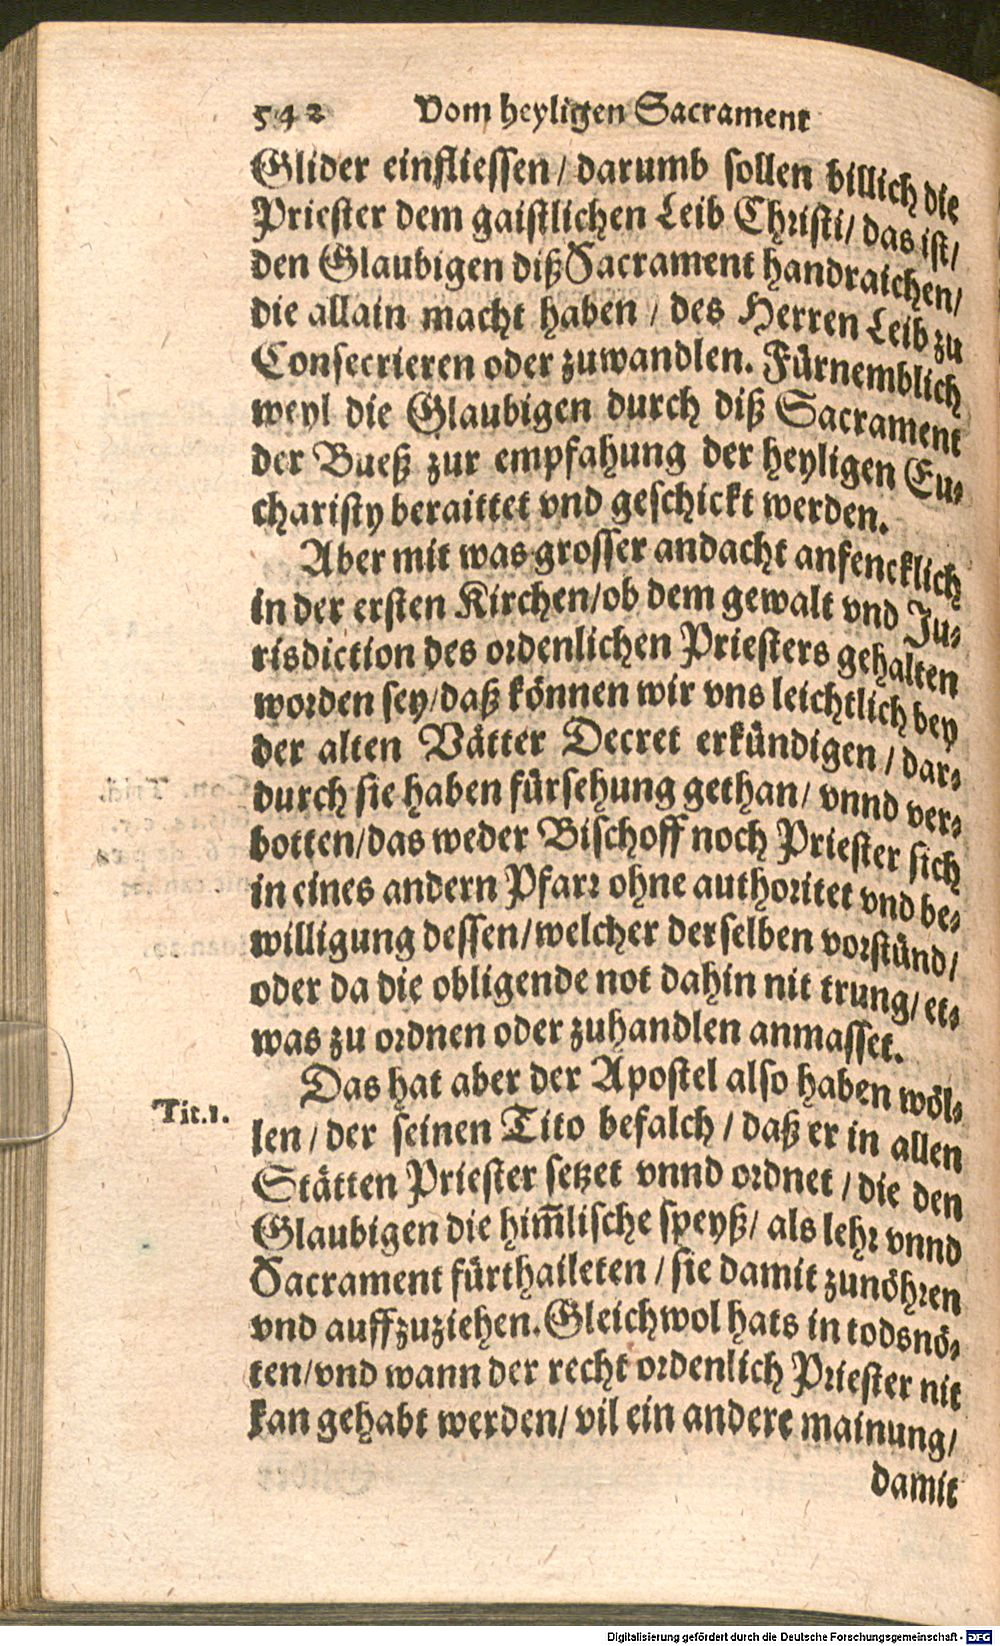 542 Vom heyligen Sacrament
Glider einfliessen / darumb sollen billich die
Priester dem gaistlichen Leib Christi / das ist /
den Glaubigen diß Sacrament handraichen /
die allain macht haben / des Herren Leib zu
Consecrieren oder zuwandlen. Fürnemblich
weyl die Glaubigen durch diß Sacrament
der Bueß zur empfahung der heyligen Eu-
charisty beraittet vnd geschickt werden.
Aber mit was grosser andacht anfencklich
in der ersten Kirchen / ob dem gewalt vnd Ju-
risdiction des ordenlichen Priesters gehalten
worden sey / daß können wir vns leichtlich bey
der alten Vätter Decret erkündigen / dar-
durch sie haben fürsehung gethan / vnnd ver-
botten / das weder Bischoff noch Priester sich
in eines andern Pfarr ohne authoritet vnd be-
willigung dessen / welcher derselben vorstünd /
oder da die obligende not dahin nit trung / et-
was zu ordnen oder zuhandlen anmasset.
Das hat aber der Apostel also haben wöl-
Tit.1.
len / der seinen Tito befalch / daß er in allen
Stätten Priester setzet vnnd ordnet / die den
Glaubigen die him̃lische speyß / als lehr vnnd
Sacrament fürthaileten / sie damit zunöhren
vnd auffzuziehen. Gleichwol hats in todsnö-
ten / vnd wann der recht ordenlich Priester nit
kan gehabt werden / vil ein andere mainung /
damit
Digitalisierung gefördert durch die Deutsche Forschungsgemeinschaft - DFG